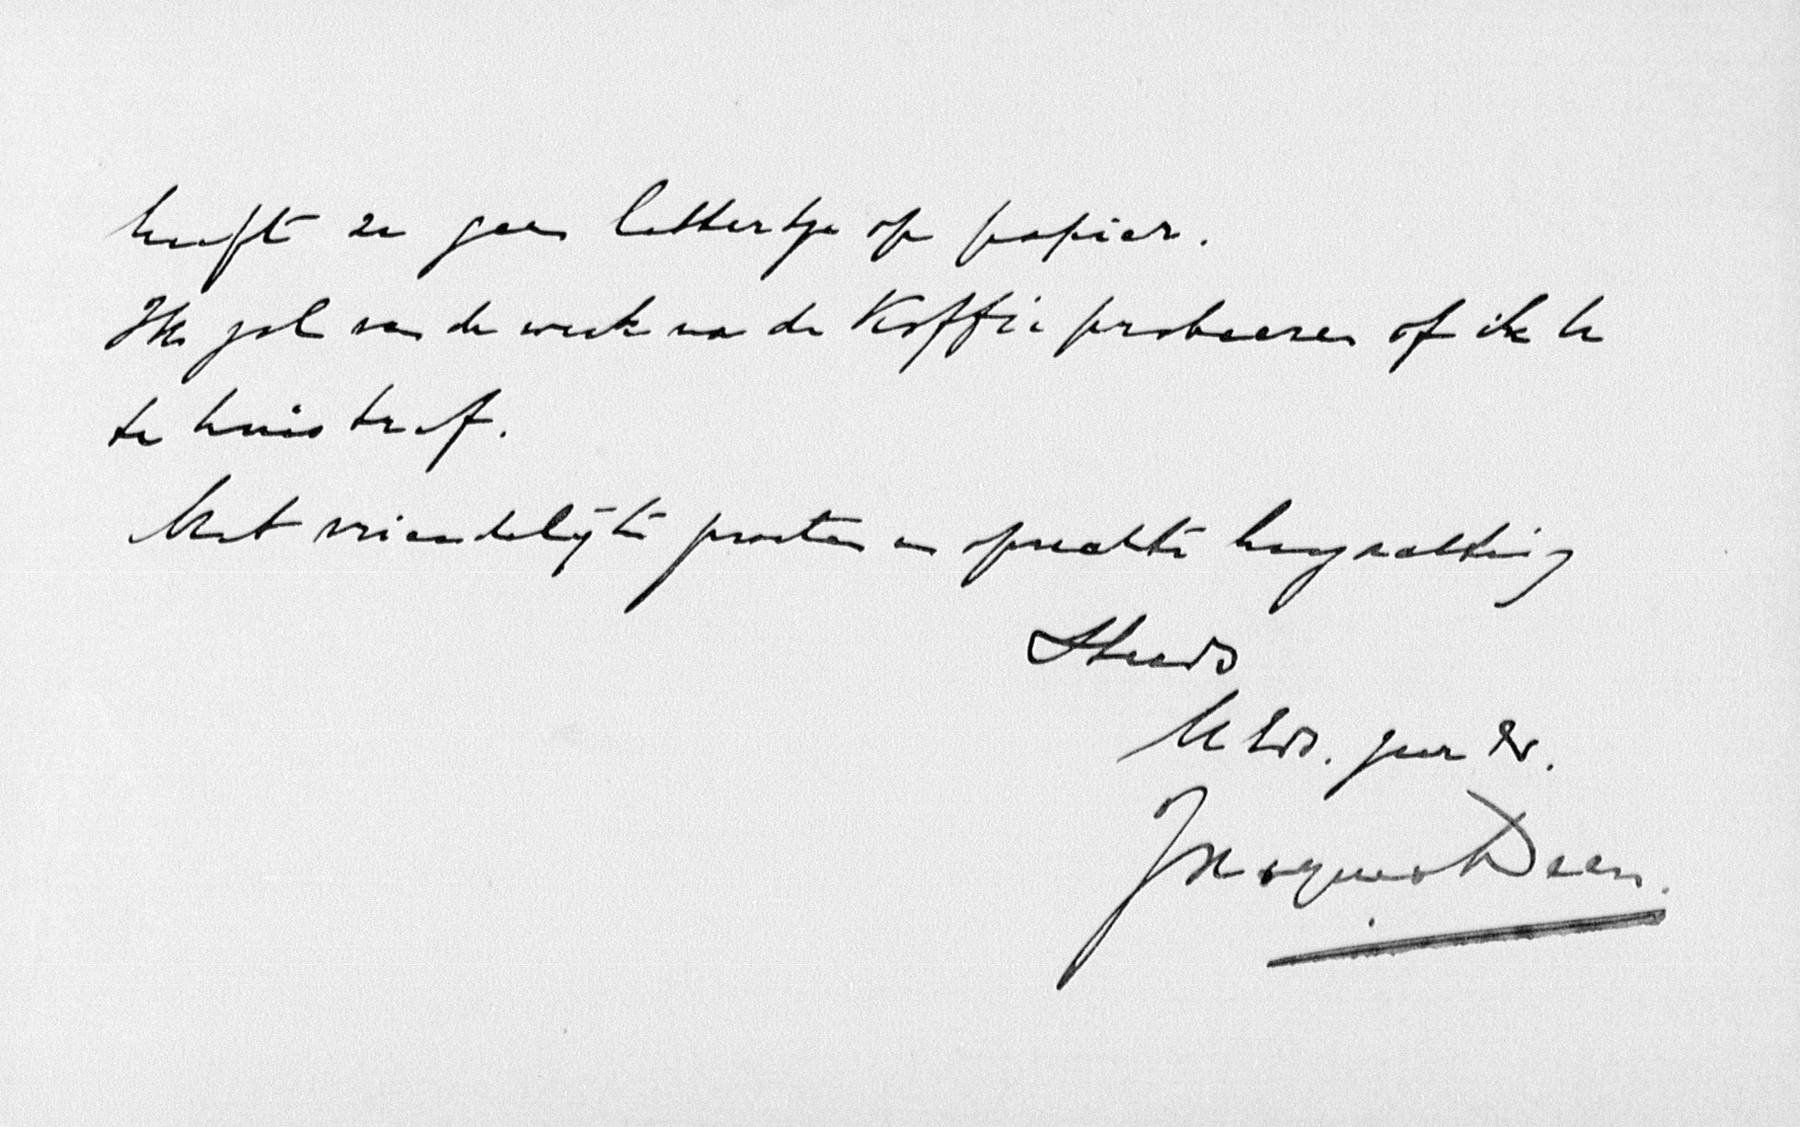 heeft ze geen lettertje op papier.
Ik zal van de week na de Koffie probeeren of ik U
te huis tref.
Met vriendelijke groeten en oprechte hoogachting
Steeds
UEd. zeer Dv.
Jacques Deen.